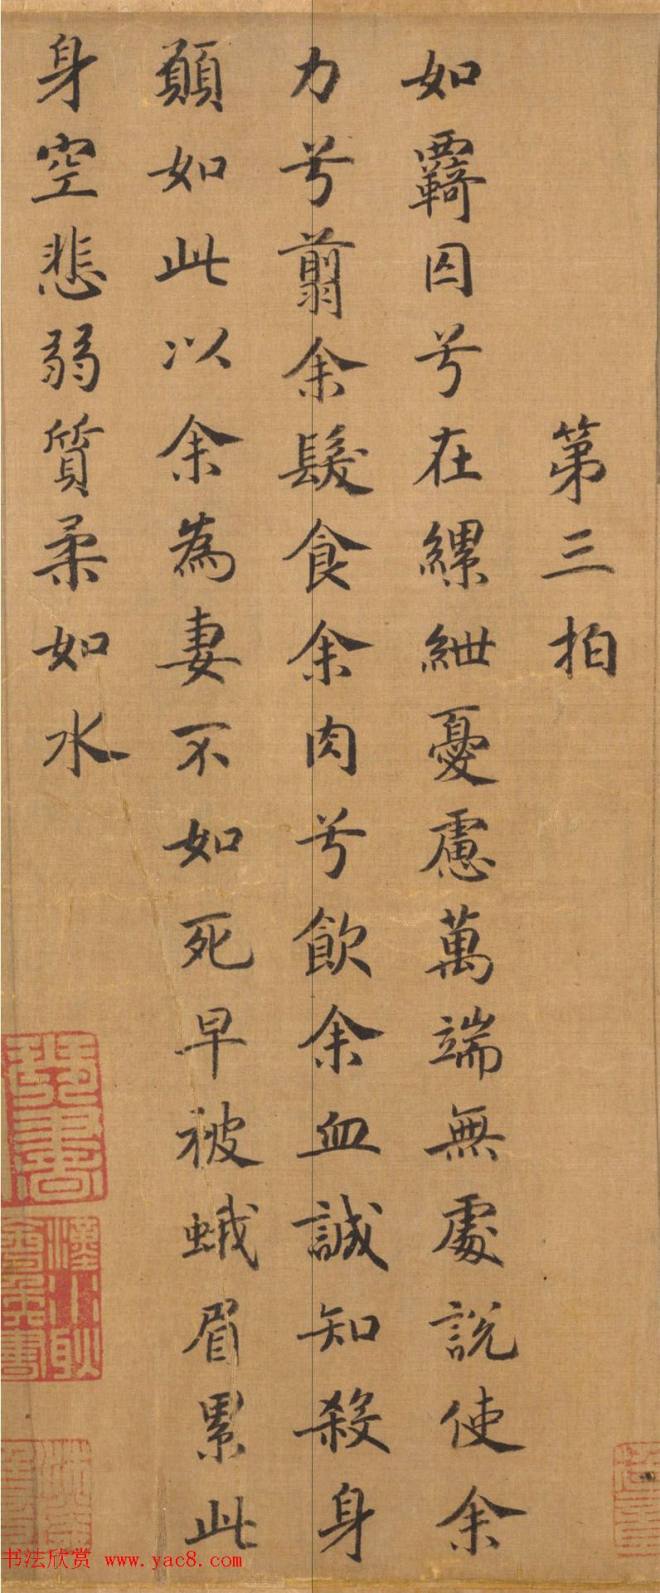 第三拍
如羇囚兮在縲紲憂慮萬端無處說使余
力兮翦余髮食余肉兮飲余血誠知殺身
願如此以余為妻不如死早被蛾眉累此
身空悲弱質柔如水
琴書
漢水耿
會侯書
书法欣赏 www.yac8.com